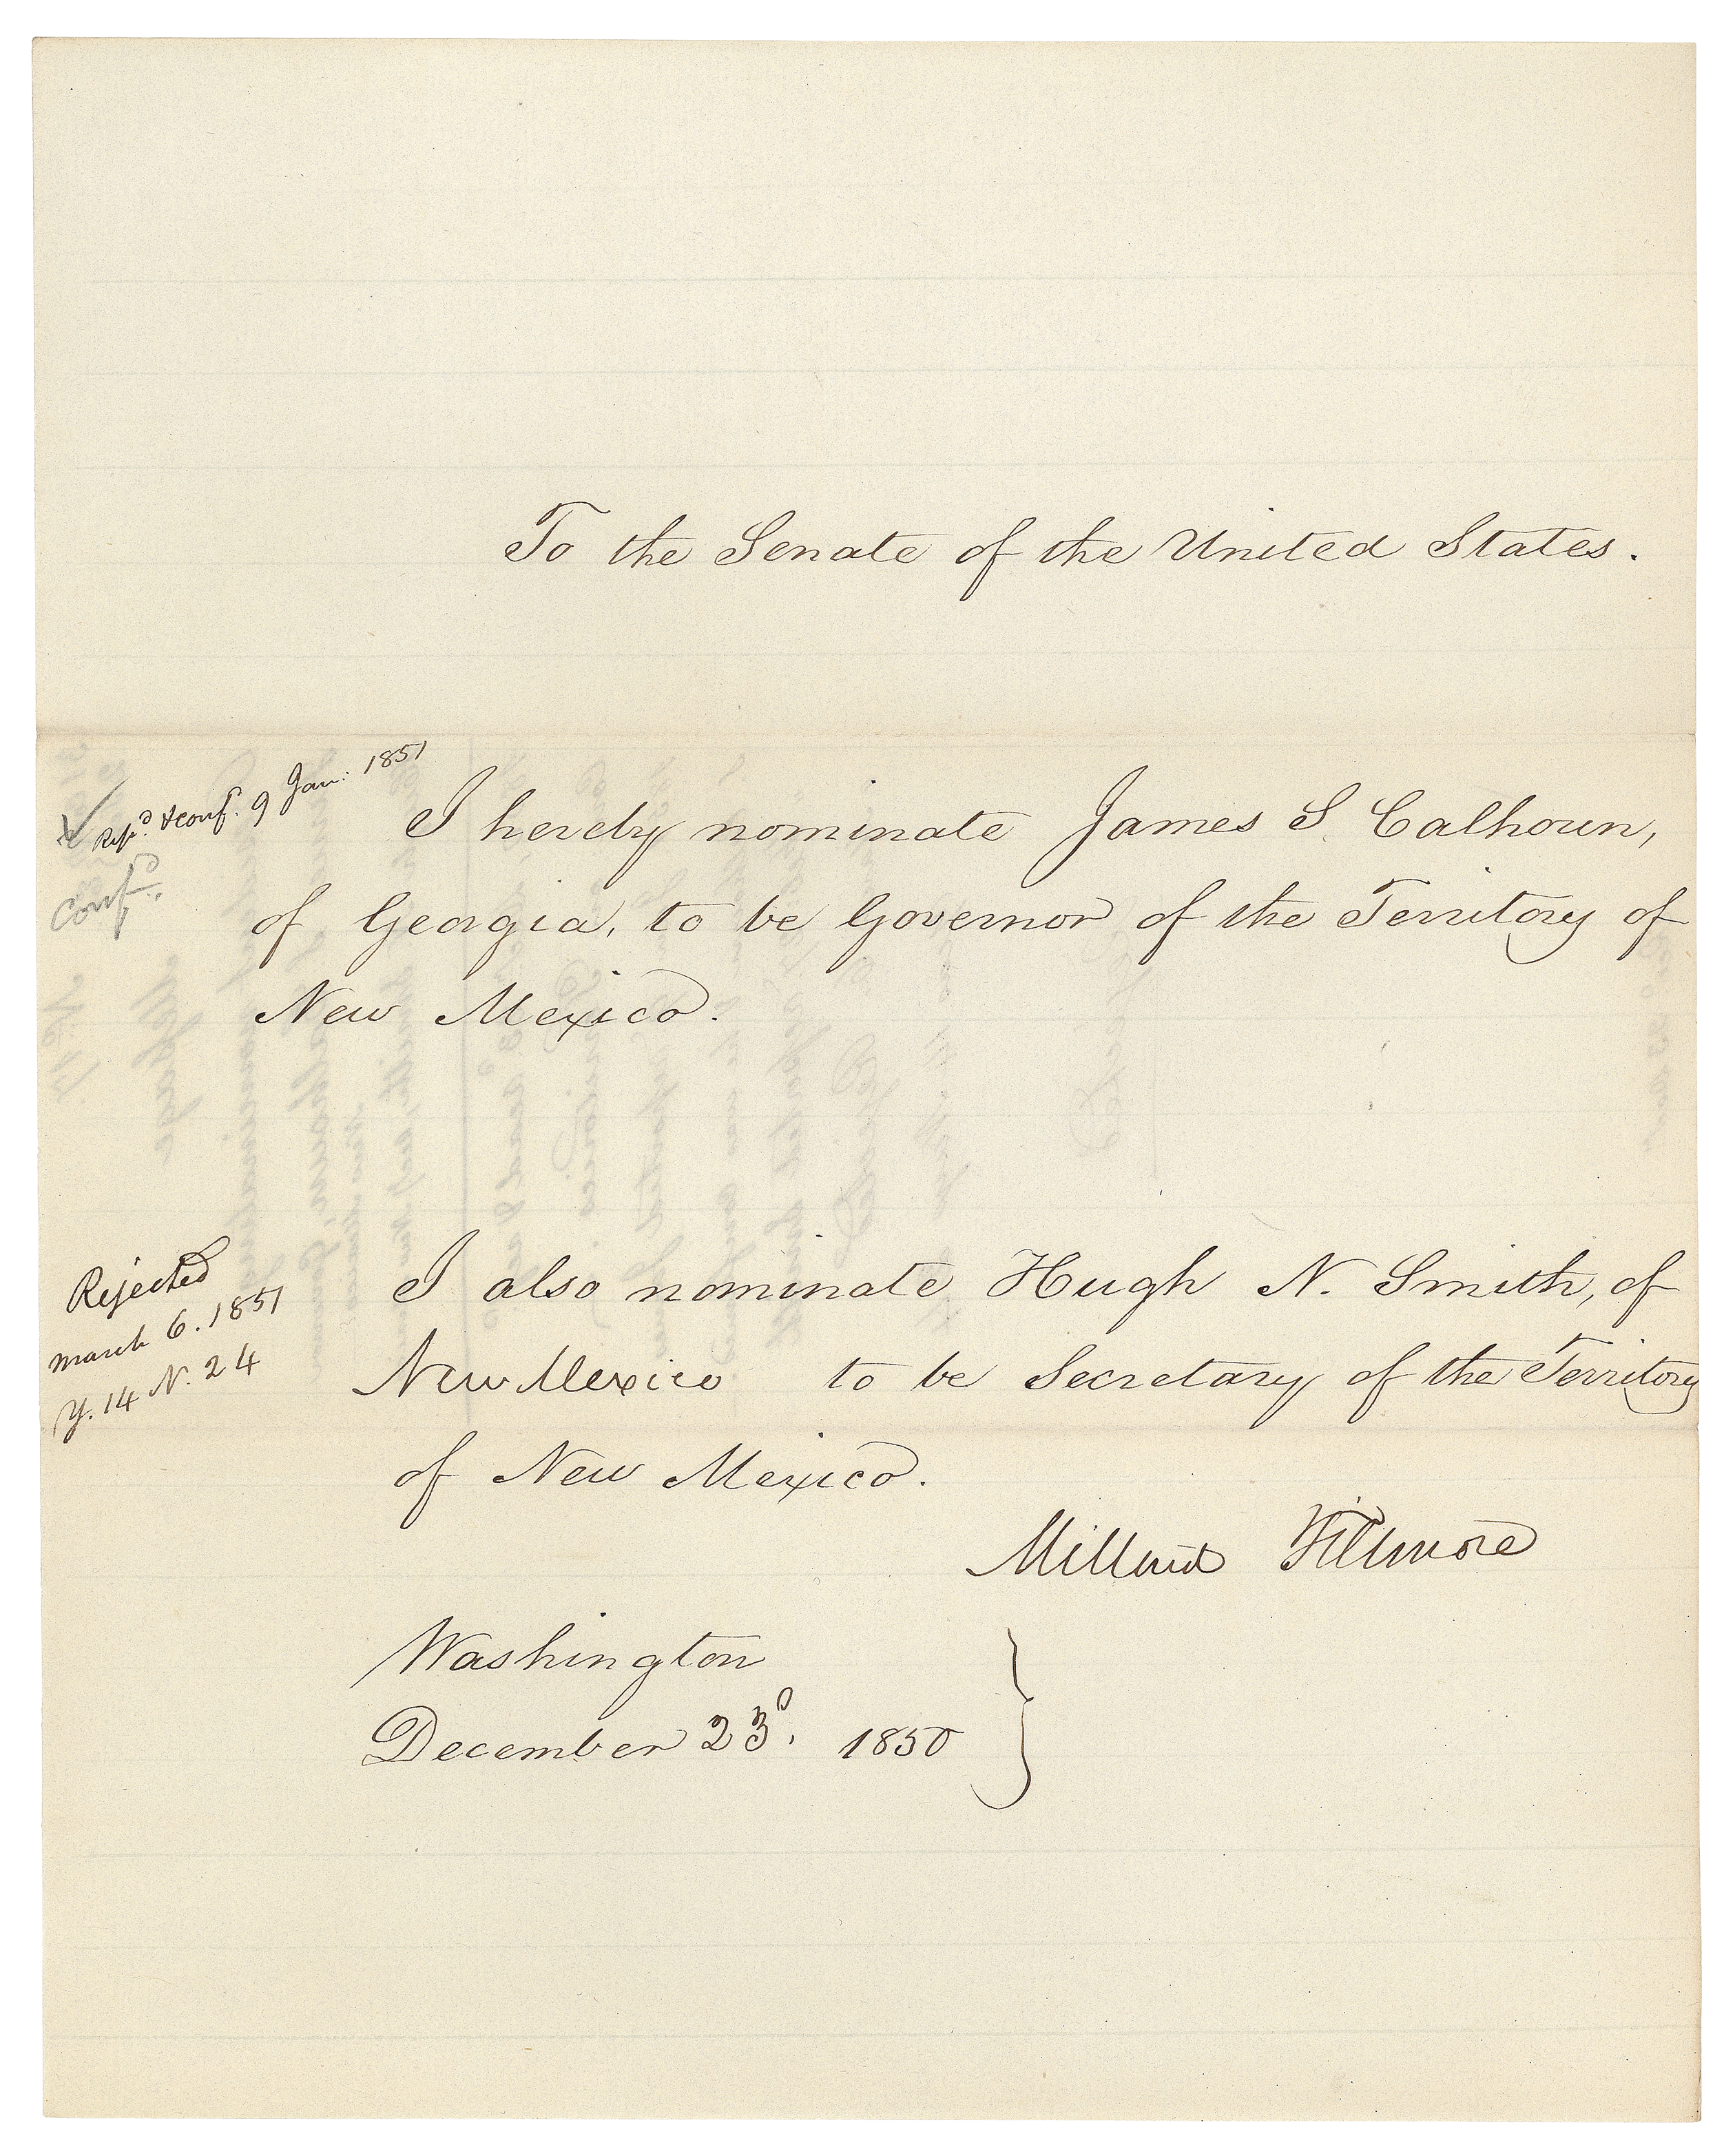 To the Senate of the United States.
Repd. & conf. 9 Jan: 1851
Confd.
I hereby nominate James S. Calhoun,
of Georgia, to be Governor of the Territory of
New Mexico.
Rejected
March 6. 1851
Y. 14 N. 24
I also nominate Hugh N. Smith, of
New Mexico to be Secretary of the Territory
of New Mexico.
Millard Fillmore
Washington
December 23d. 1850